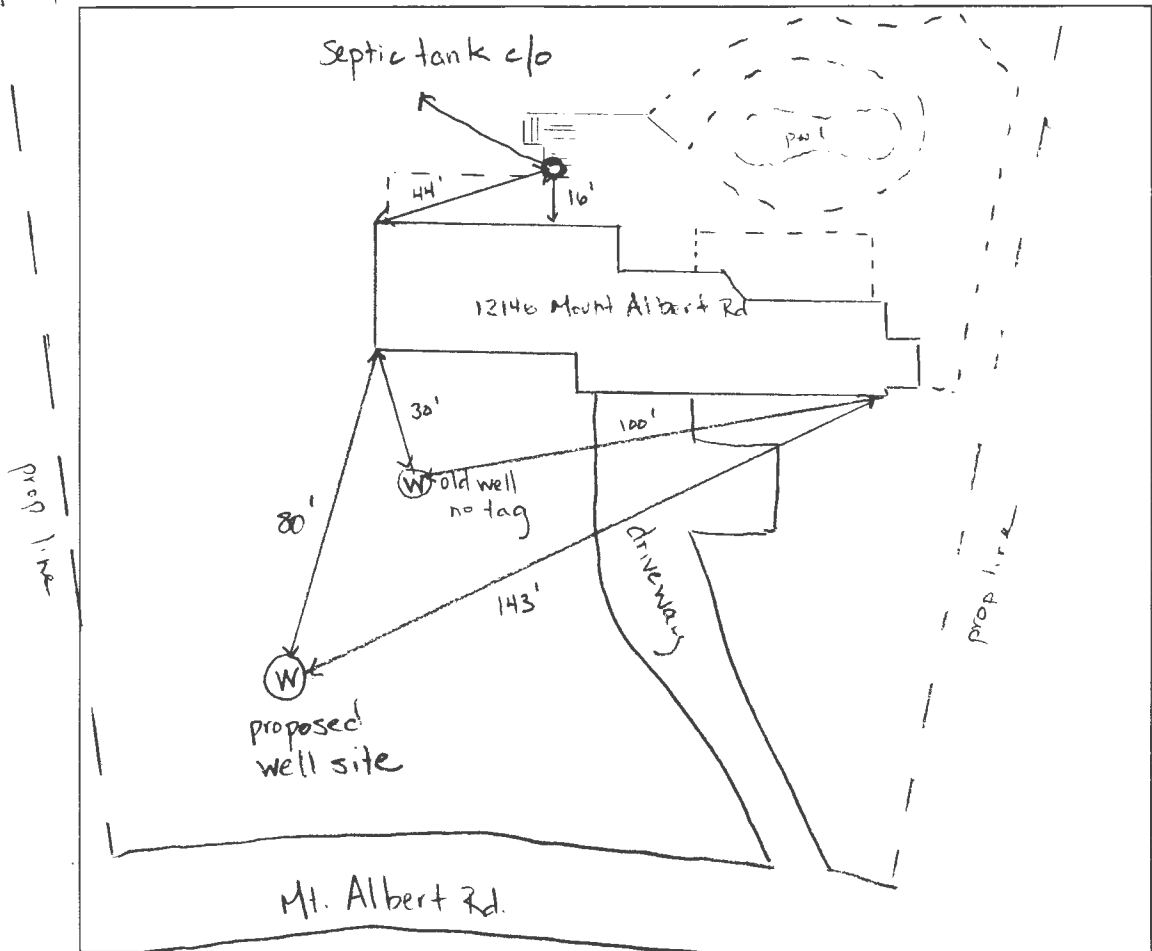 Septic tank c/o
pool
44'
16'
12146 Mount Albert Rd
30'
100'
W
old well
no tag
80'
143'
driveway
prop line
prop line
W
proposed
well site
Mt. Albert Rd.